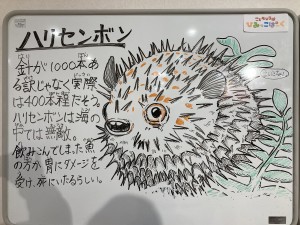 ハリセンボン
針が1000本あ
る訳じゃなく実際
は400本程だそう。
ハリセンボンは海の
中では無敵。
飲みこんでしまった魚
の方が胃にダメージを
受け、死にいたるらしい。